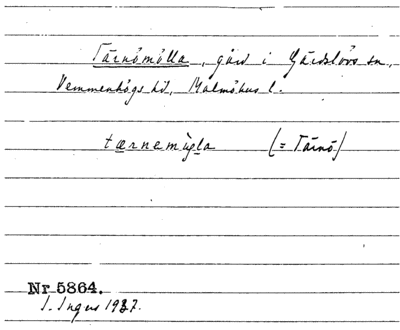 Tärnömölla, gård i Gärdslövs sn.,
Vemmenhögs hd, Malmöhus l.
(= Tärnö)
Nr 5864.
I. Ingers 1937.